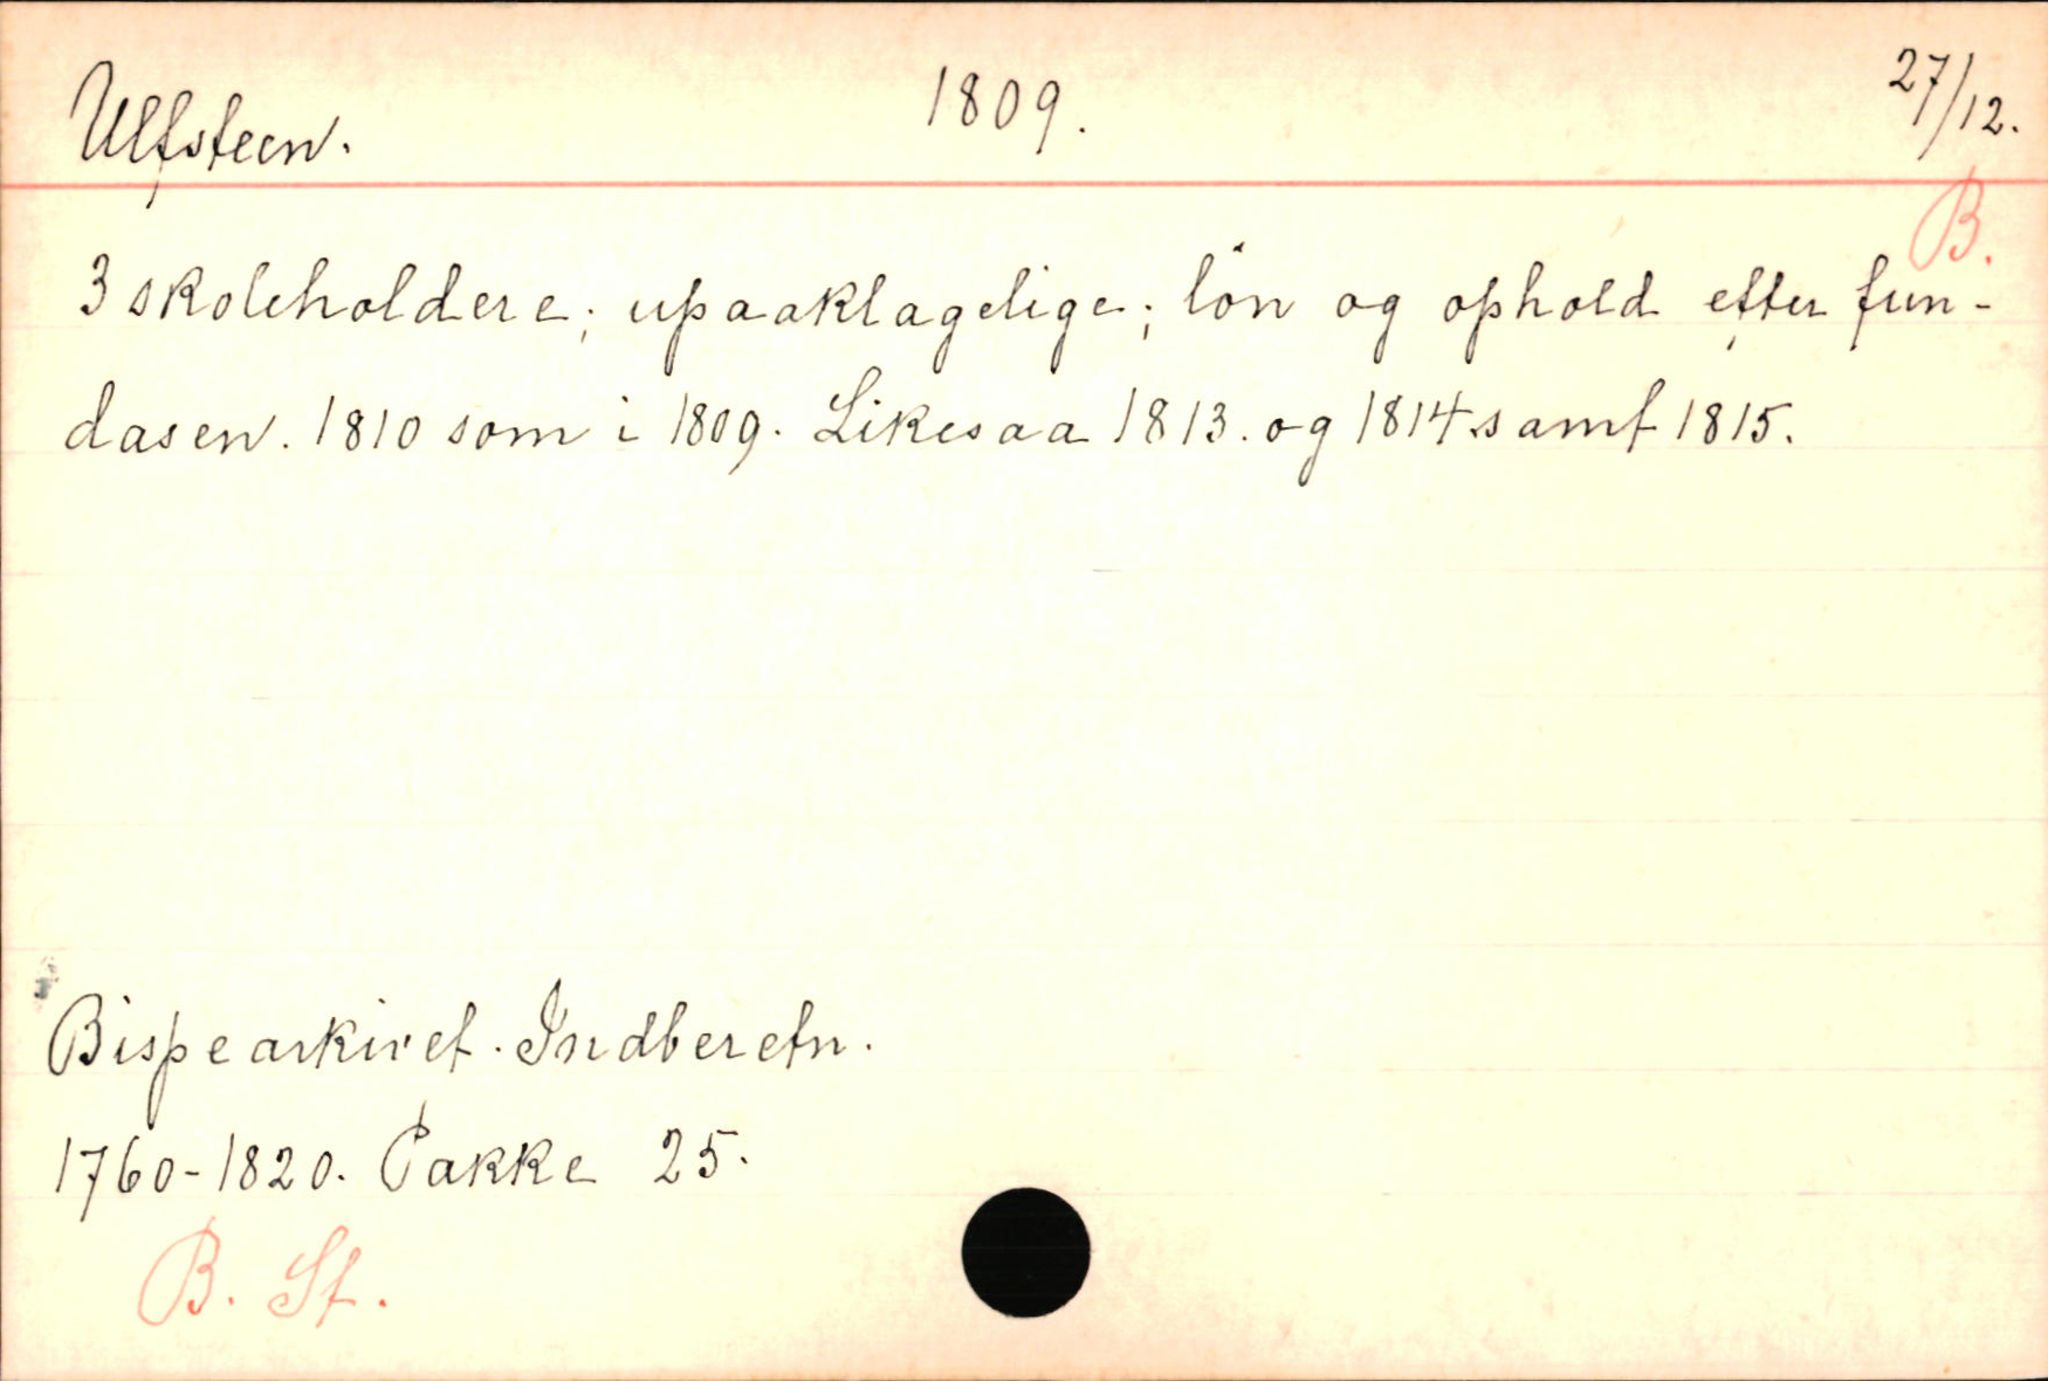 Ulfsteen. 1809. 27/12.
B.
3 skoleholdere; upaaklagelige; lön og ophold efter fun-
dasen. 1810 som i 1809. Likesaa 1813. og 1814. samt 1815.
Bispearkivet. Indberetn.
1760-1820. Pakke 25.
B. St.